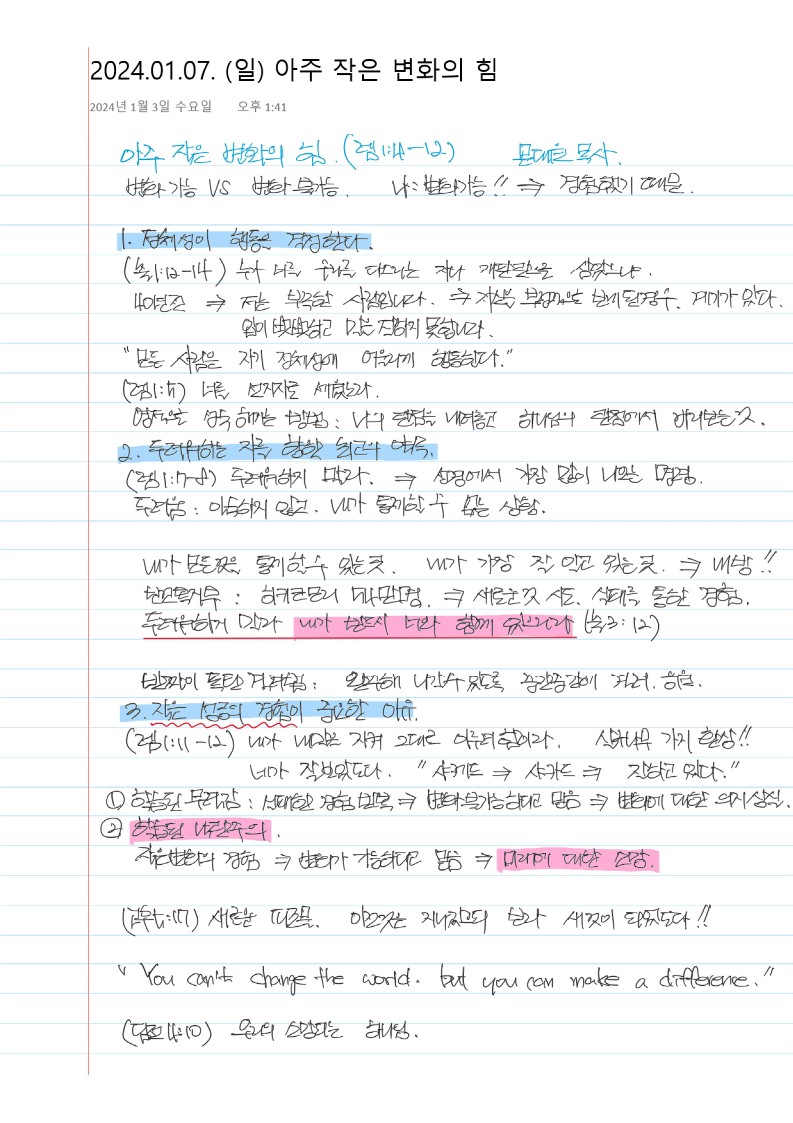 2024.01.07. (일) 아주 작은 변화의 힘
2024년 1월 3일 수요일 오후 1:41
아주 작은 변화의 힘. (렘1:4-12) 목사.
변화 가능 VS 변화 불가능. 나:변화가능!! ⇒ 경험했기 때문.
1. 정체성이 행동을 결정한다.
(출1:12-14) 누가 너를 우리를 다스리는 자나 재판관으로 삼았느냐.
40년간 ⇒ 저는 부족한 사람입니다. ⇒ 자신을 부정적으로 보게 된 경우. 계기가 있다.
입이 뻣뻣하고 말을 잘하지 못합니다.
"모든 사람은 자기 정체성에 어울리게 행동한다."
(렘1:5) 너를 선지자로 세웠노라.
영적으로 성숙해지는 방법 : 나의 관점을 내려놓고 하나님의 관점에서 바라보는 것.
2. 두려워하는 자를 향한 최고의 약속.
(렘1:7-8) 두려워하지 말라. ⇒ 성경에서 가장 많이 나오는 명령.
두려움 : 익숙하지 않고. 내가 통제할 수 없는 상황.
내가 모든것을 통제할수 있는곳. 내가 가장 잘 알고 있는곳. ⇒ 내방!!
⇒ 새로운것 시도. 실패를 통한 경험.
두려워하지 말라 내가 반드시 너와 함께 있으리라 (출3:12)
: 완주해 나갈수 있도록 중간중간에 격려. 응원.
3. 작은 성공의 경험이 중요한 이유.
(렘1:11-12) 내가 내 말을 지켜 그대로 이루려 함이라. 살구나무 가지 환상!!
네가 잘 보았도다. "샤케드 ⇒ 샤카드 ⇒ 지키고 있다."
① 학습된 무력감 : 실패한 경험 반복 ⇒ 변화 불가능하다고 믿음 ⇒ 변화에 대한 의지상실.
② 학습된 낙관주의.
작은변화의 경험 ⇒ 변화가 가능하다고 믿음 ⇒ 미래에 대한 소망.
(고후5:17) 새로운 피조물. 이전것은 지나갔으니 보라 새것이 되었도다!!
"You can't change the world. but you can make a difference."
(딤전4:10) 우리의 소망되는 하나님.